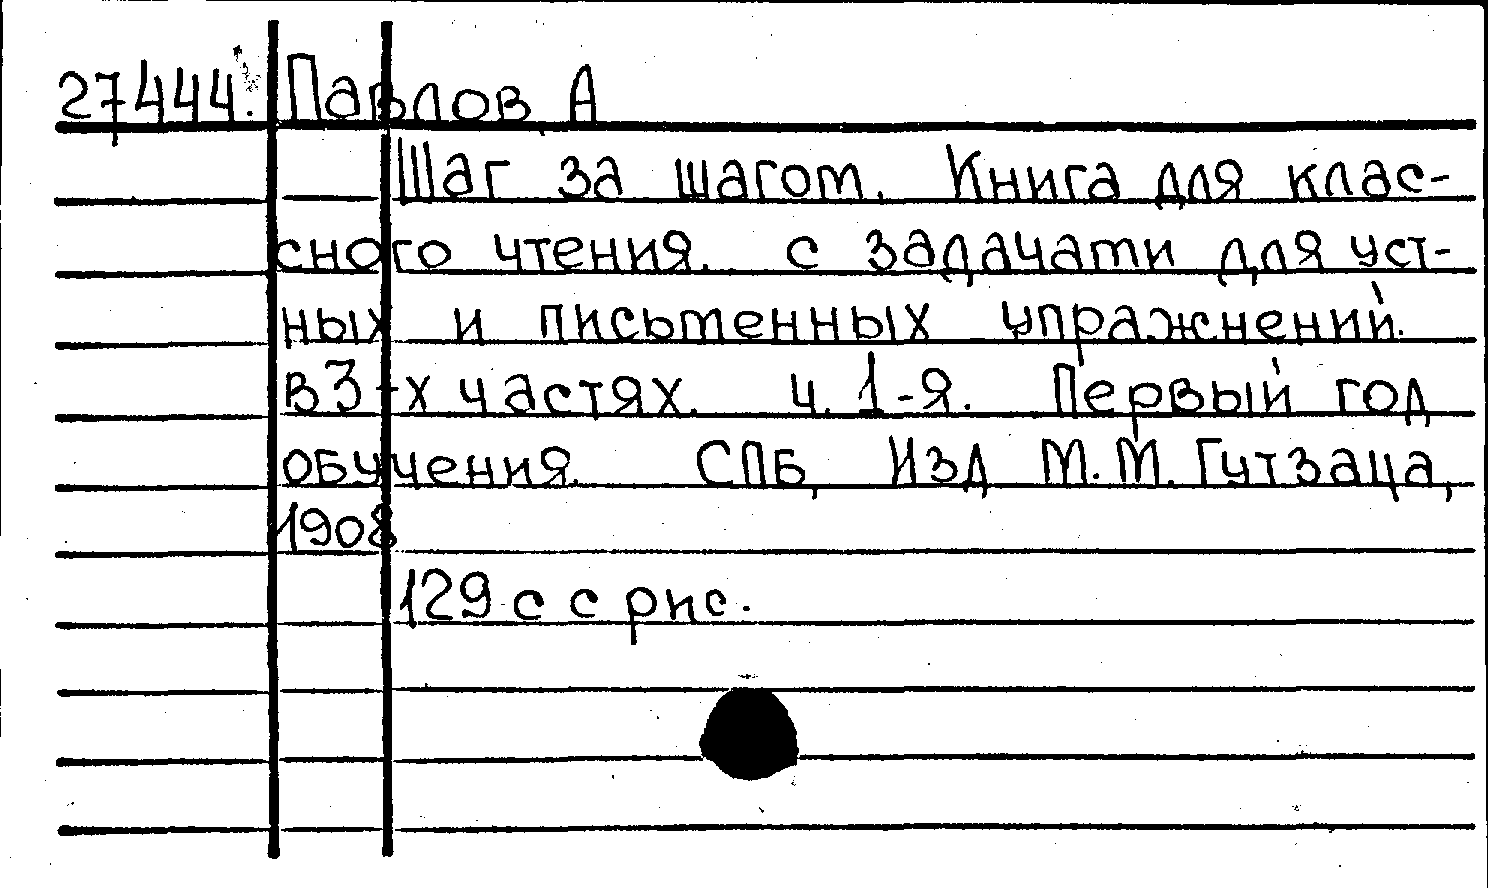 27444. Павлов А
Шаг за шагом. Книга для клас-
сного чтения. с задачами для уст-
ных и письменных упражнений.
в 3-х частях. ч. 1-я. Первый год
обучения. СПБ, Изд М.М. Гутзаца,
1908
129 с с рис.